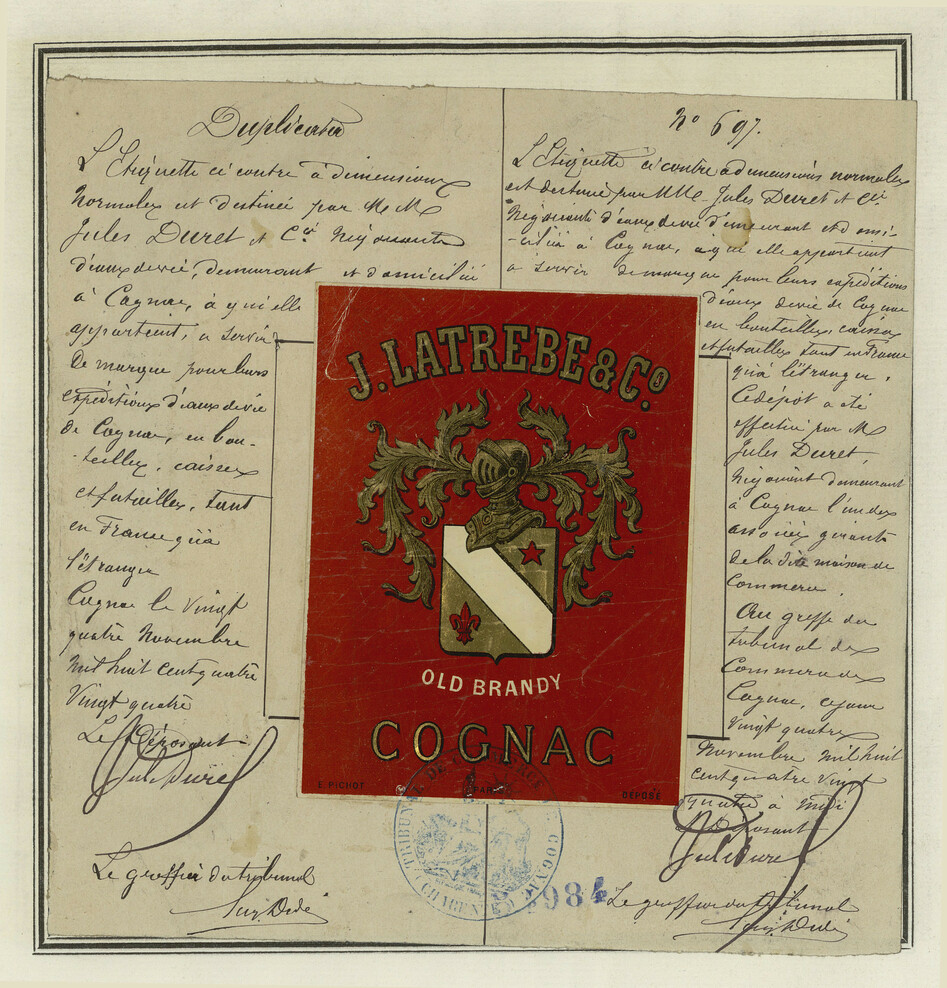 Duplicata
L'Etiquette ci contre à dimensions
Normales est destinée par M M
Jules Duret et Cie Négociants
d'eaux de vie, demeurant et domiciliés
à Cognac, à qui elle
appartient, à servir
de marque pour leurs
expéditions d'eaux de vie
de Cognac, en bou-
-teilles, caisses
et futailles, tant
en France qu'à
l'étranger
Cognac le vingt
quatre Novembre
mil huit cent quatre
Vingt quatre
Le Déposant
Jules Duret
Le greffier du tribunal
No 697.
L'Etiquette ci contre à dimensions normales
est destinée par MM. Jules Duret et Cie
Négociants d'eaux de vie demeurant et domi-
-ciliés à Cognac, à qui elle appartient
à servir de marque pour leurs expéditions
d'eaux de vie de Cognac
en bouteilles caisses
et futailles tant en France
qu'à l'étranger.
Ce dépôt a été
effectué par M
Jules Duret,
Négociant demeurant
à Cognac l'un des
associés gérants
de la dite maison de
Commerce.
Au greffe du
tribunal de
Commerce de
Cognac, ce jour
Vingt quatre
Novembre mil huit
cent quatre Vingt
quatre à midi
Le Déposant
Jules Duret
Le greffier du tribunal
J. LATREBE & Co.
OLD BRANDY
COGNAC
E. PICHOT
PARIS
DÉPOSÉ
TRIBUNAL DE COMMERCE DE COGNAC
(CHARENTE)
984